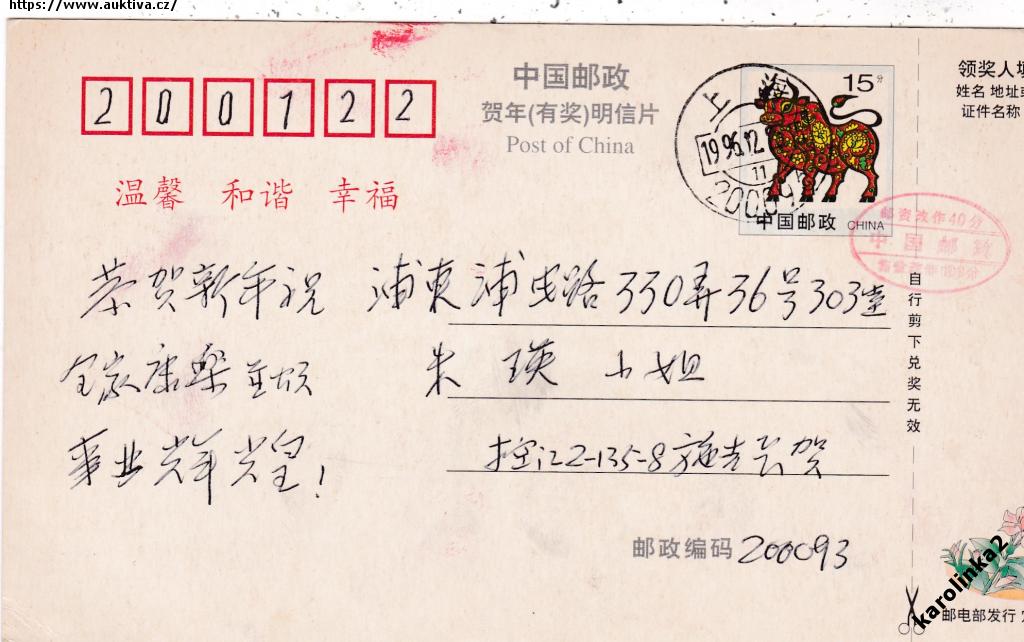 https://www.auktiva.cz/
200122
中国邮政
贺年(有奖)明信片
Post of China
上海
1996.12
11
200093
15分
中国邮政 CHINA
邮资改作40分
中国邮政
领奖人填
姓名 地址或
证件名称
温馨 和谐 幸福
恭贺新年祝
全家康乐並颂
事业
浦东浦电路330弄36号303室
朱 瑛 小姐
控江2-135-8施 贺
邮政编码 200093
自行剪下兑奖无效
邮电部发行
karolinka2